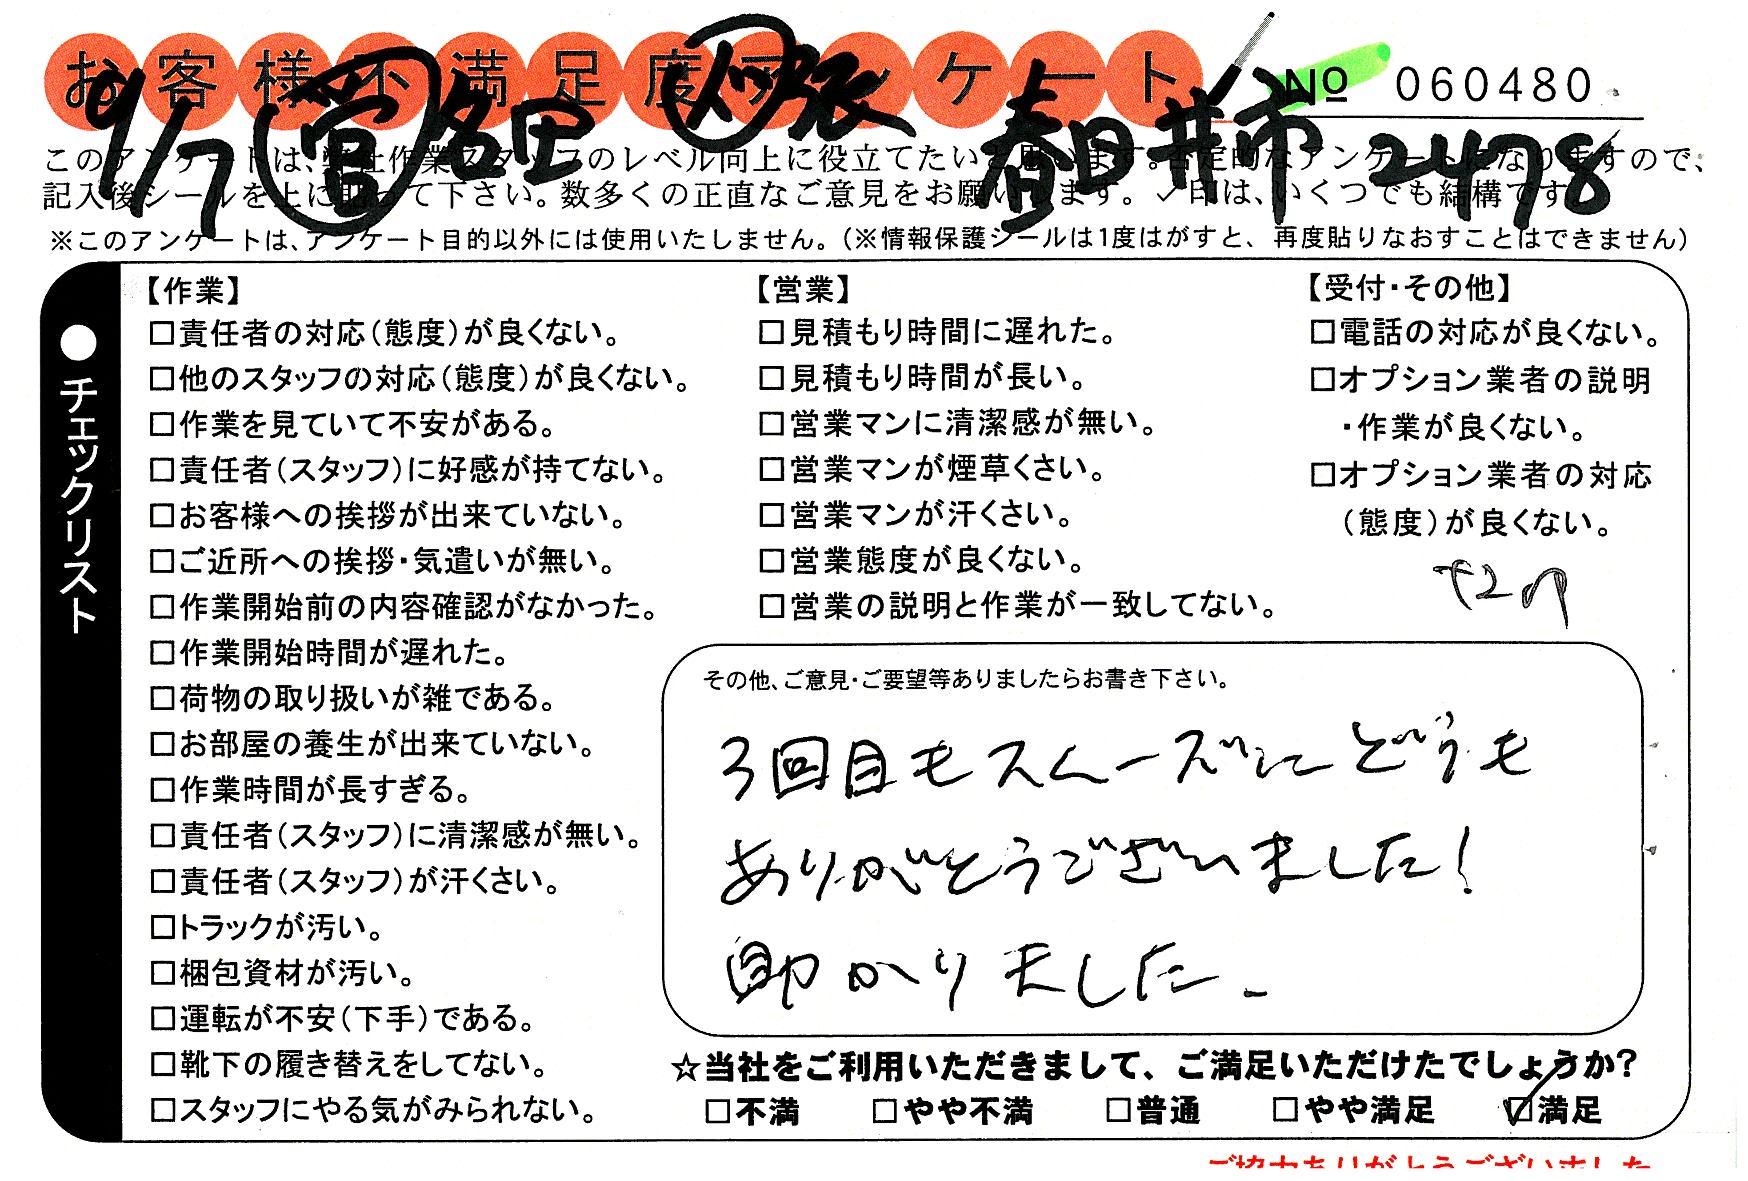 お客様不満足度アンケート No 060480
9/7 春日井市 2478
このアンケートは、弊社作業スタッフのレベル向上に役立てたいと思います。否定的なアンケートになりますので、
記入後シールを上に貼って下さい。数多くの正直なご意見をお願いします。✓印は、いくつでも結構です。
※このアンケートは、アンケート目的以外には使用いたしません。(※情報保護シールは1度はがすと、再度貼りなおすことはできません)
●チェックリスト
【作業】
□責任者の対応(態度)が良くない。
□他のスタッフの対応(態度)が良くない。
□作業を見ていて不安がある。
□責任者(スタッフ)に好感が持てない。
□お客様への挨拶が出来ていない。
□ご近所への挨拶・気遣いが無い。
□作業開始前の内容確認がなかった。
□作業開始時間が遅れた。
□荷物の取り扱いが雑である。
□お部屋の養生が出来ていない。
□作業時間が長すぎる。
□責任者(スタッフ)に清潔感が無い。
□責任者(スタッフ)が汗くさい。
□トラックが汚い。
□梱包資材が汚い。
□運転が不安(下手)である。
□靴下の履き替えをしてない。
□スタッフにやる気がみられない。
【営業】
□見積もり時間に遅れた。
□見積もり時間が長い。
□営業マンに清潔感が無い。
□営業マンが煙草くさい。
□営業マンが汗くさい。
□営業態度が良くない。
□営業の説明と作業が一致してない。
【受付・その他】
□電話の対応が良くない。
□オプション業者の説明
・作業が良くない。
□オプション業者の対応
(態度)が良くない。
その他、ご意見・ご要望等ありましたらお書き下さい。
3回目もスムーズにどうも
ありがとうございました!
助かりました。
☆当社をご利用いただきまして、ご満足いただけたでしょうか?
□不満 □やや不満 □普通 □やや満足 ☑満足
ご協力ありがとうございました